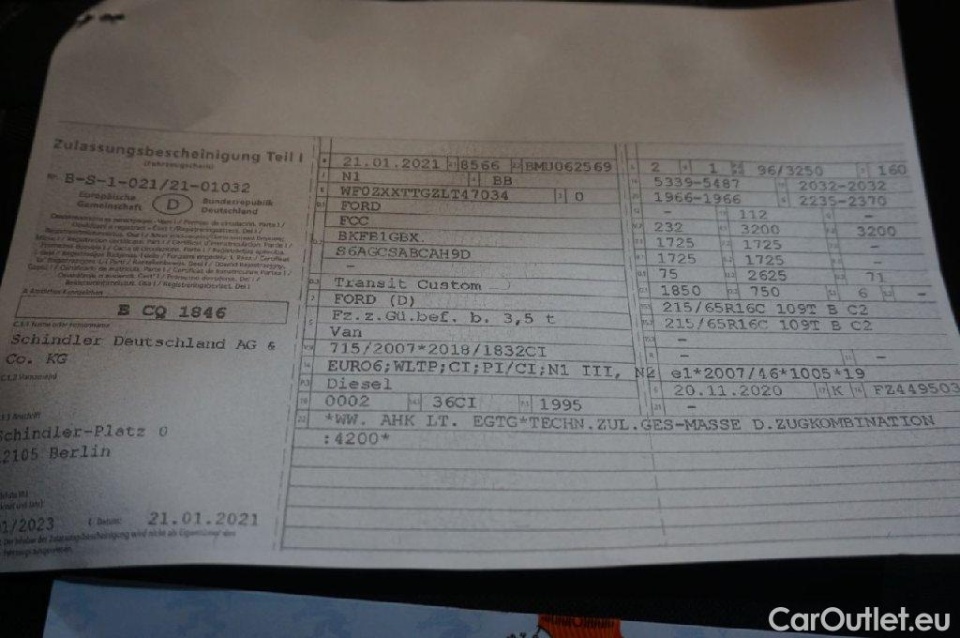 Zulassungsbescheinigung Teil I
(Fahrzeugschein)
Nr. B-S-1-021/21-01032
Europäische Gemeinschaft D Bundesrepublik Deutschland
A Amtliches Kennzeichen
B CQ 1846
C.1.1 Name oder Firmenname
Schindler Deutschland AG &
Co. KG
C.1.2 Vorname(n)
Schindler-Platz 0
12105 Berlin
01/2023 21.01.2021
21.01.2021 8566 BMU062569
N1 BB
WF0ZXXTTGZLT47034 0
FORD
FCC
BKFB1GBX.
S6AGCSABCAH9D
-
Transit Custom
FORD (D)
Fz.z.Gü.bef. b. 3,5 t
Van
715/2007*2018/1832CI
EURO6;WLTP;CI;PI/CI;N1 III, N2
Diesel
0002 36CI 1995
*WW. AHK LT. EGTG*TECHN.ZUL.GES-MASSE D.ZUGKOMBINATION
:4200*
2 1 96/3250 160
5339-5487 2032-2032
1966-1966 2235-2370
- 112 -
232 3200 3200
1725 1725 -
1725 1725 -
75 2625 71
1850 750 6 -
215/65R16C 109T B C2
215/65R16C 109T B C2
-
- -
e1*2007/46*1005*19
20.11.2020 K FZ449503
-
CarOutlet.eu